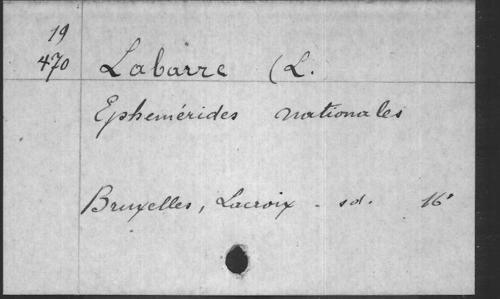 19
470 Labarre (L.
Ephemérides nationales
Bruxelles, Lacroix - sd. 16°